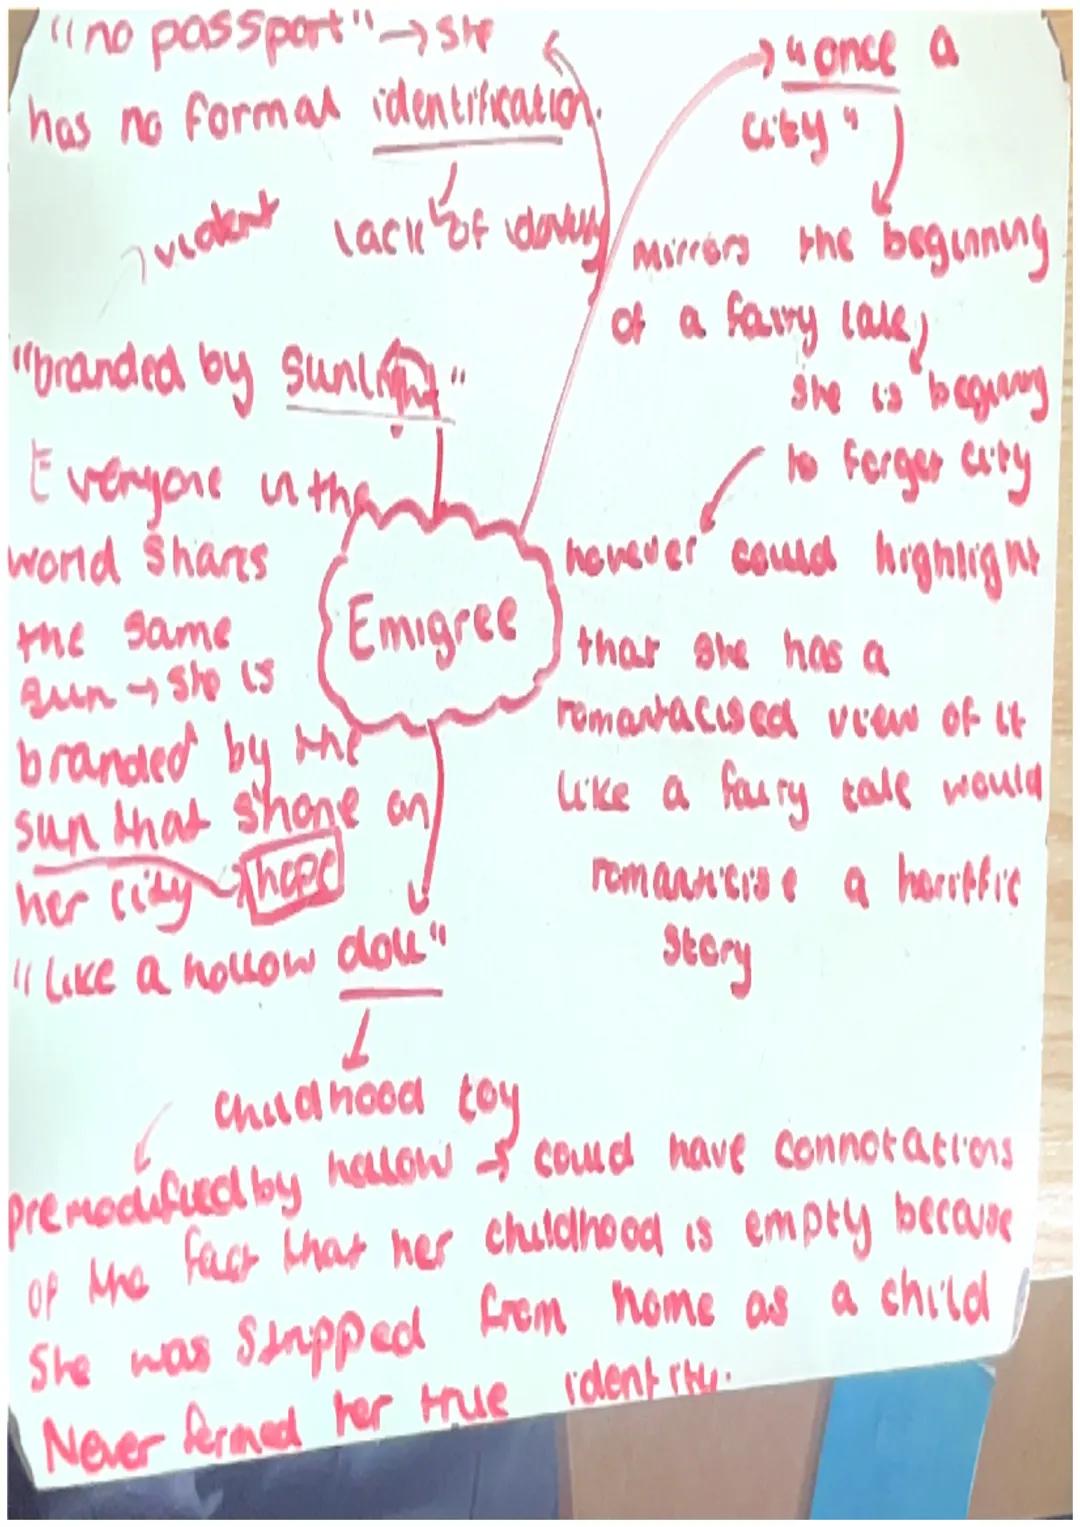 "no passport" → she
has no formal identification.
lack of identity
violent
"branded by sunlight"
Everyone in the
world shares
the same
sun → she is
branded by the
sun that shone on
her city → hope
Emigree
→ "once a
city"
mirrors the beginning
of a fairy tale,
she is begining
to forget city
however could highlight
that she has a
romantacised view of it
like a fairy tale would
romanticise a horiffic
story
"like a hollow doll"
childhood toy
premodified by hollow → could have connotations
of the fact that her childhood is empty because
She was stripped from home as a child
Never formed her true identity.